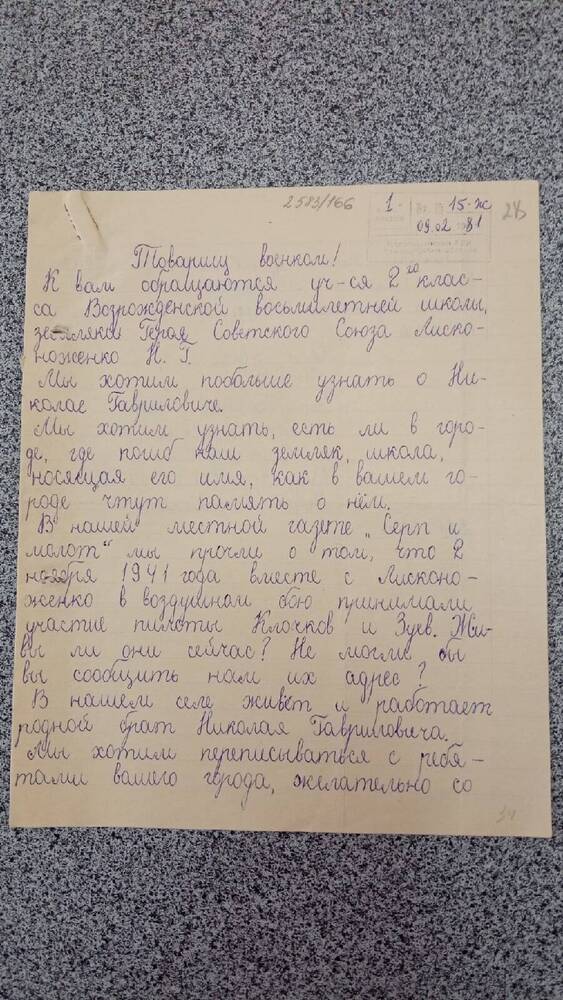 2583/166
1 15-ж 28
09.02 81
Товарищ военком!
К вам обращаются уч-ся 2го клас-
са Возрожденской восьмилетней школы,
земляки Героя Советского Союза Лиско-
ноженко Н. Г.
Мы хотим побольше узнать о Ни-
колае Гавриловиче.
Мы хотим узнать, есть ли в горо-
де, где погиб наш земляк, школа,
носящая его имя, как в вашем го-
роде чтут память о нём.
В нашей местной газете „Серп и
молот" мы прочли о том, что 2
ноября 1941 года вместе с Лисконо-
женко в воздушном бою принимали
участие пилоты Клочков и Зуев. Жи-
вы ли они сейчас? Не могли бы
вы сообщить нам их адрес?
В нашем селе живёт и работает
родной брат Николая Гавриловича.
Мы хотим переписываться с ребя-
тами вашего города, желательно со